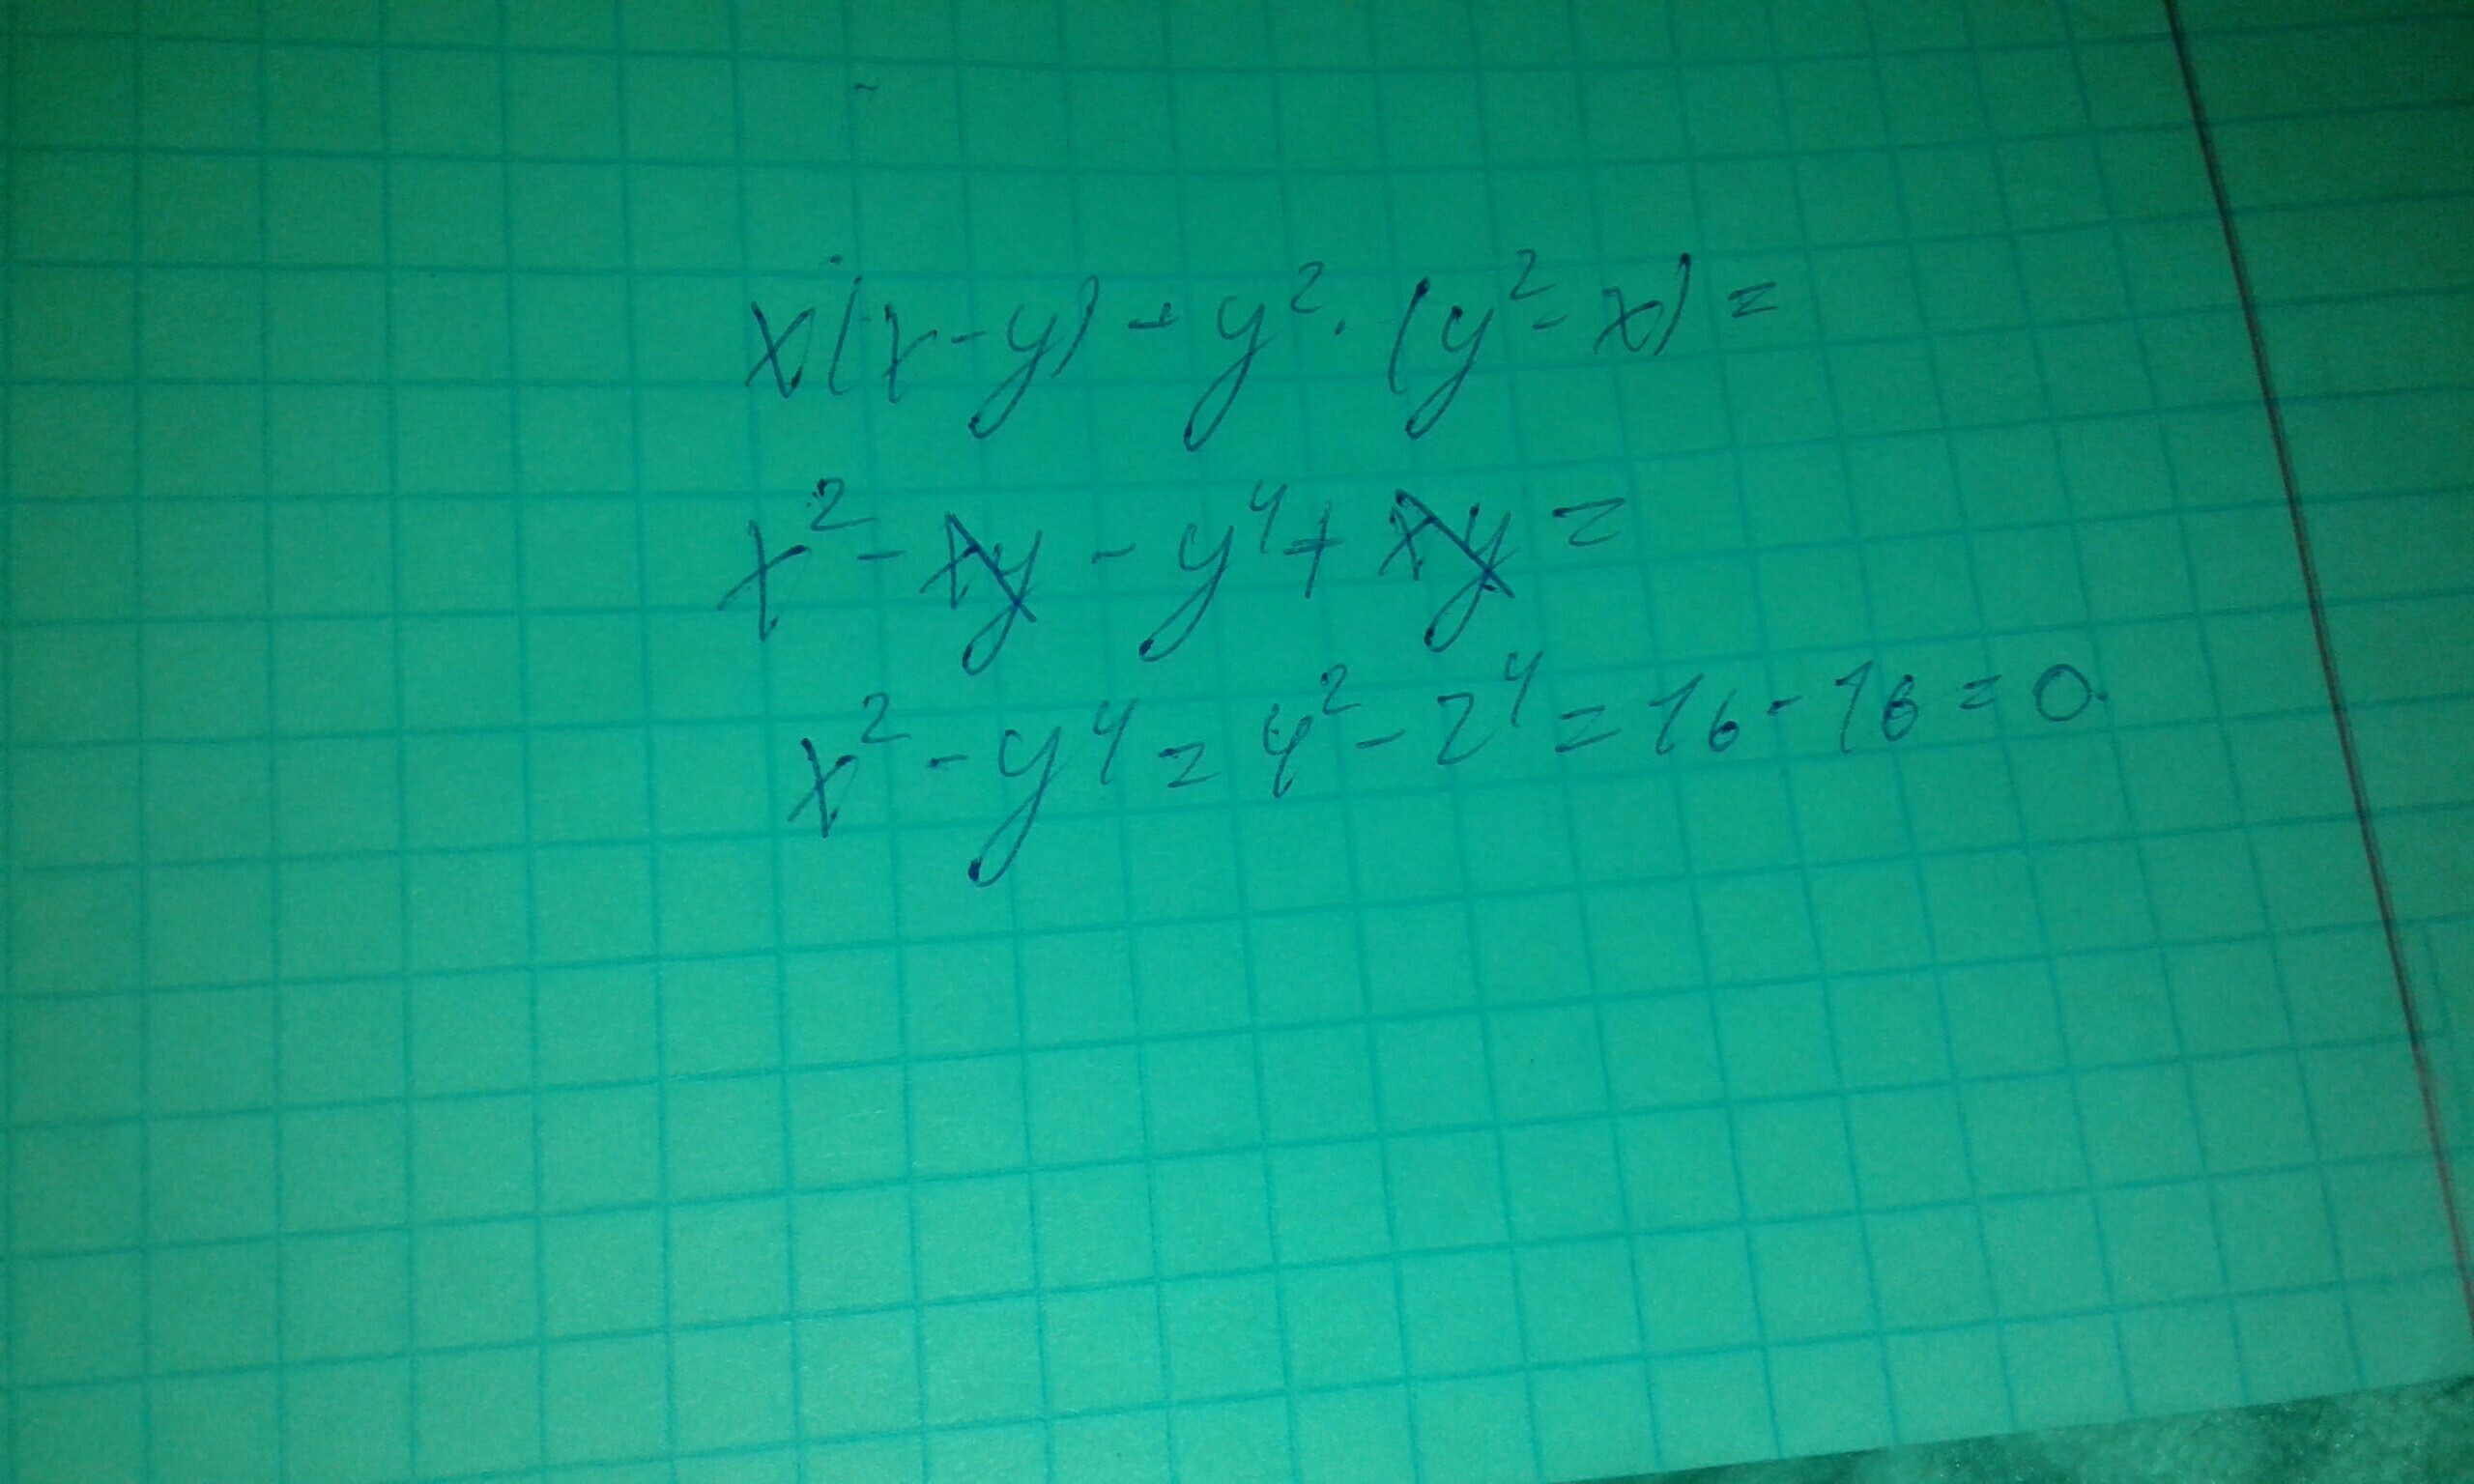 x(x-y)-y²·(y²-x)=
x²-xy-y⁴+xy=
x²-y⁴=4²-2⁴=16-16=0.